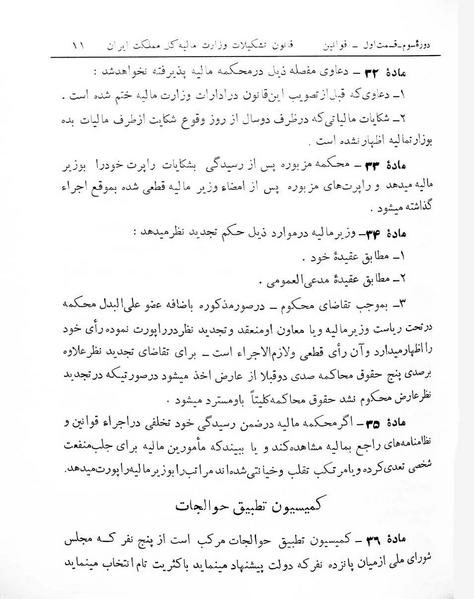 دورهٔ سوم - قسمت اول - قوانین قانون تشکیلات وزارت مالیه کل مملکت ایران ۱۱
مادهٔ ۳۲ - دعاوی مفصله ذیل در محکمه مالیه پذیرفته نخواهد شد :
۱ - دعاوی که قبل از تصویب این قانون در ادارات وزارت مالیه ختم شده است .
۲ - شکایات مالیاتی که در ظرف دو سال از روز وقوع شکایت از طرف مالیات بده
بوزارت مالیه اظهار نشده است .
مادهٔ ۳۳ - محکمه مزبوره پس از رسیدگی بشکایات راپرت خود را بوزیر
مالیه میدهد و راپرت‌های مزبوره پس از امضاء وزیر مالیه قطعی شده بموقع اجراء
گذاشته میشود .
مادهٔ ۳۴ - وزیر مالیه در موارد ذیل حکم تجدید نظر میدهد :
۱ - مطابق عقیدهٔ خود .
۲ - مطابق عقیدهٔ مدعی العمومی .
۳ - بموجب تقاضای محکوم - در صور مذکوره باضافه عضو علی البدل محکمه
در تحت ریاست وزیر مالیه و یا معاون او منعقد و تجدید نظر در راپورت نموده رأی خود
را اظهار میدارد و آن رأی قطعی و لازم الاجراء است - برای تقاضای تجدید نظر علاوه
بر صدی پنج حقوق محاکمه صدی دو قبلا از عارض اخذ میشود در صورتیکه در تجدید
نظر عارض محکوم نشد حقوق محاکمه کلیتاً باو مسترد میشود .
مادهٔ ۳۵ - اگر محکمه مالیه در ضمن رسیدگی خود تخلفی در اجراء قوانین و
نظامنامه‌های راجع بمالیه مشاهده کند و یا ببیند که مأمورین مالیه برای جلب منفعت
شخصی تعدی کرده و یا مرتکب تقلب و خیانتی شده‌اند مراتب را بوزیر مالیه راپورت میدهد.
کمیسیون تطبیق حوالجات
مادهٔ ۳۶ - کمیسیون تطبیق حوالجات مرکب است از پنج نفر که مجلس
شورای ملی از میان پانزده نفر که دولت پیشنهاد مینماید باکثریت تام انتخاب مینماید